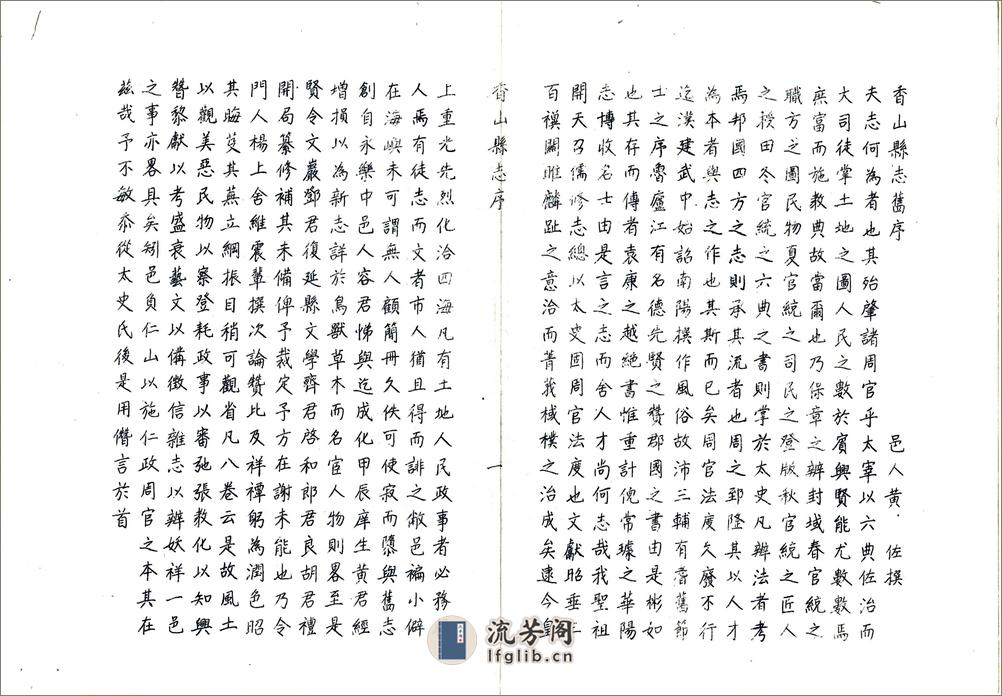 香山縣志舊序　邑人黃　佐撰
夫志何為者也其殆肇諸周官乎太宰以六典佐治而
大司徒掌土地之圖人民之數於賓興賢能尤數數焉
庶富而施教典故當爾也乃保章之辨封域春官統之
職方之圖民物夏官統之司民之登版秋官統之匠人
之授田冬官統之六典之書則掌於太史凡辨法者考
焉邦國四方之志則承其流者也周之郅隆其以人才
為本者與志之作也其斯而已矣周官法度久廢不行
迄漢建武中始詔南陽撰作風俗故沛三輔有耆舊節
士之序魯廬江有名德先賢之贊郡國之書由是彬如
也其存而傳者袁康之越絕書惟重計倪常璩之華陽
志博收名士由是言之志而舍人才尚何志哉我聖祖
開天召儒修志總以太史固周官法度也文獻昭垂三
百禩關雎麟趾之意洽而菁莪棫樸之治成矣逮今皇
香山縣志序　一
上重光先烈化洽四海凡有土地人民政事者必務
人焉有徒志而文者市人猶且得而誹之敝邑褊小僻
在海嶼未可謂無人顧簡冊久佚可使寂而隳與舊志
創自永樂中邑人容君悌與迄成化甲辰庠生黃君經
增損以為新志詳於鳥獸草木而名宦人物則畧至是
賢令文巖鄧君復延縣文學齊君啓和郎君良胡君禮
開局纂修補其未備俾予裁定予方在謝未能也乃令
門人楊上舍維震輩撰次論贊比及祥禫躬為潤色昭
其晦芟其蕪立綱振目稍可觀省凡八卷云是故風土
以觀美惡民物以察登耗政事以審弛張教化以知興
替黎獻以考盛衰藝文以備徵信雜志以辨妖祥一邑
之事亦畧具矣矧邑負仁山以施仁政周官之本其在
茲哉予不敏忝從太史氏後是用僭言於首
流芳阁
lfglib.cn